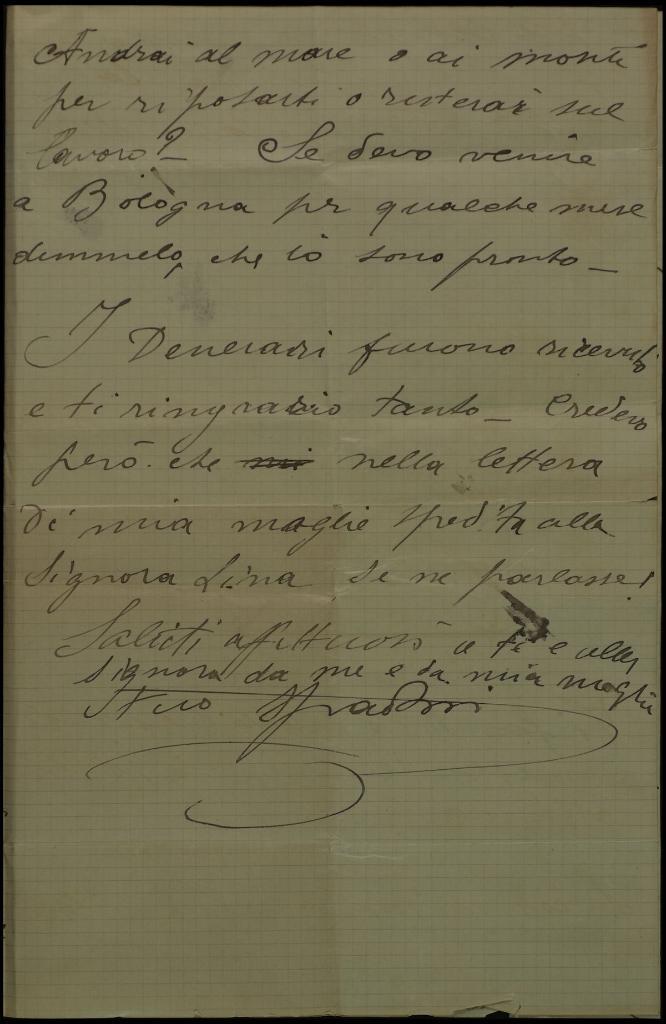 Andrai al mare o ai monti
per riposarti o resterai sul
lavoro? – Se devo venire
a Bologna per qualche mese
dimmelo, che io sono pronto –
I Denerari furono ricevuti
e ti ringrazio tanto – Credevo
però che mi nella lettera
di mia moglie spedita alla
Signora Lina se ne parlasse!
Saluti affettuosi a te e alla
Signora da me e da mia moglie
Tuo Spadoni